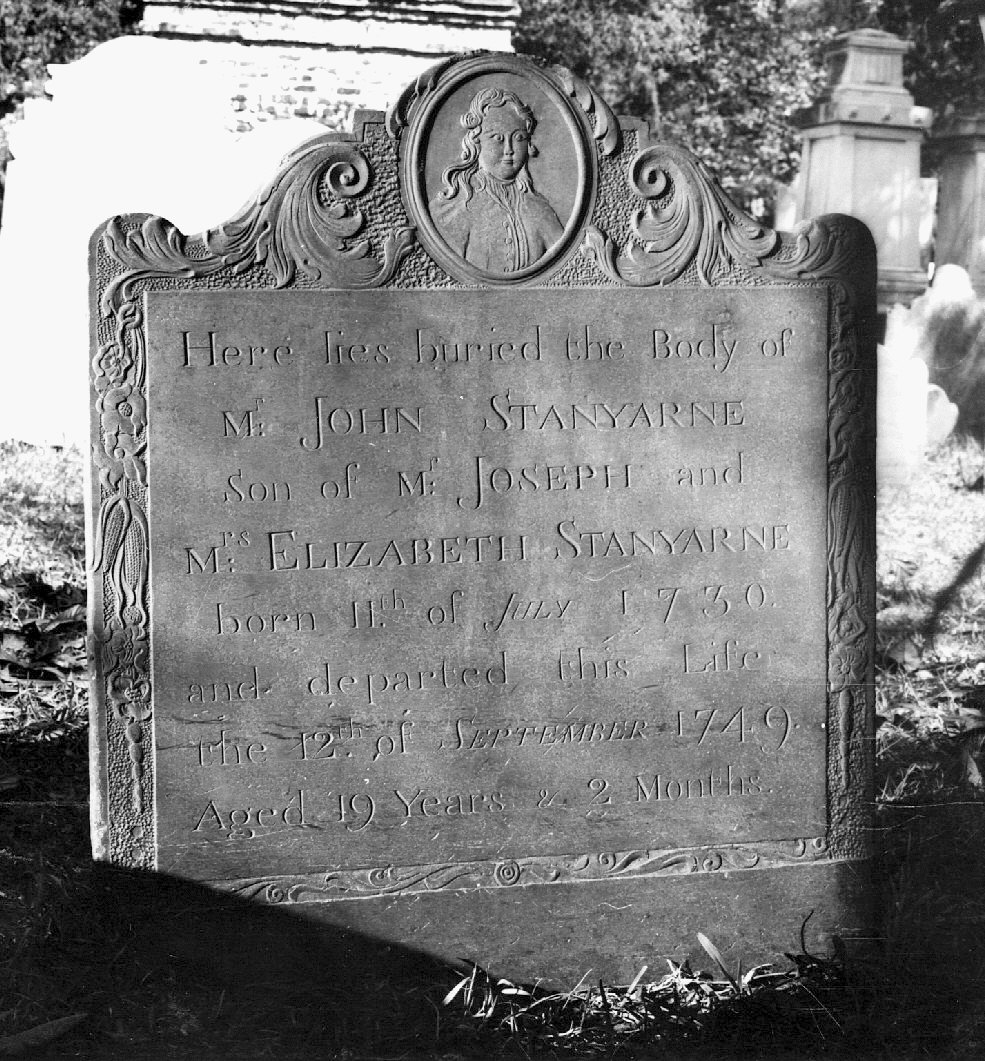 Here lies buried the Body of
Mr. JOHN STANYARNE
Son of Mr. JOSEPH and
Mrs. ELIZABETH STANYARNE
born 11th. of JULY 1730.
and departed this Life
the 12th. of SEPTEMBER 1749.
Aged 19 Years & 2 Months.